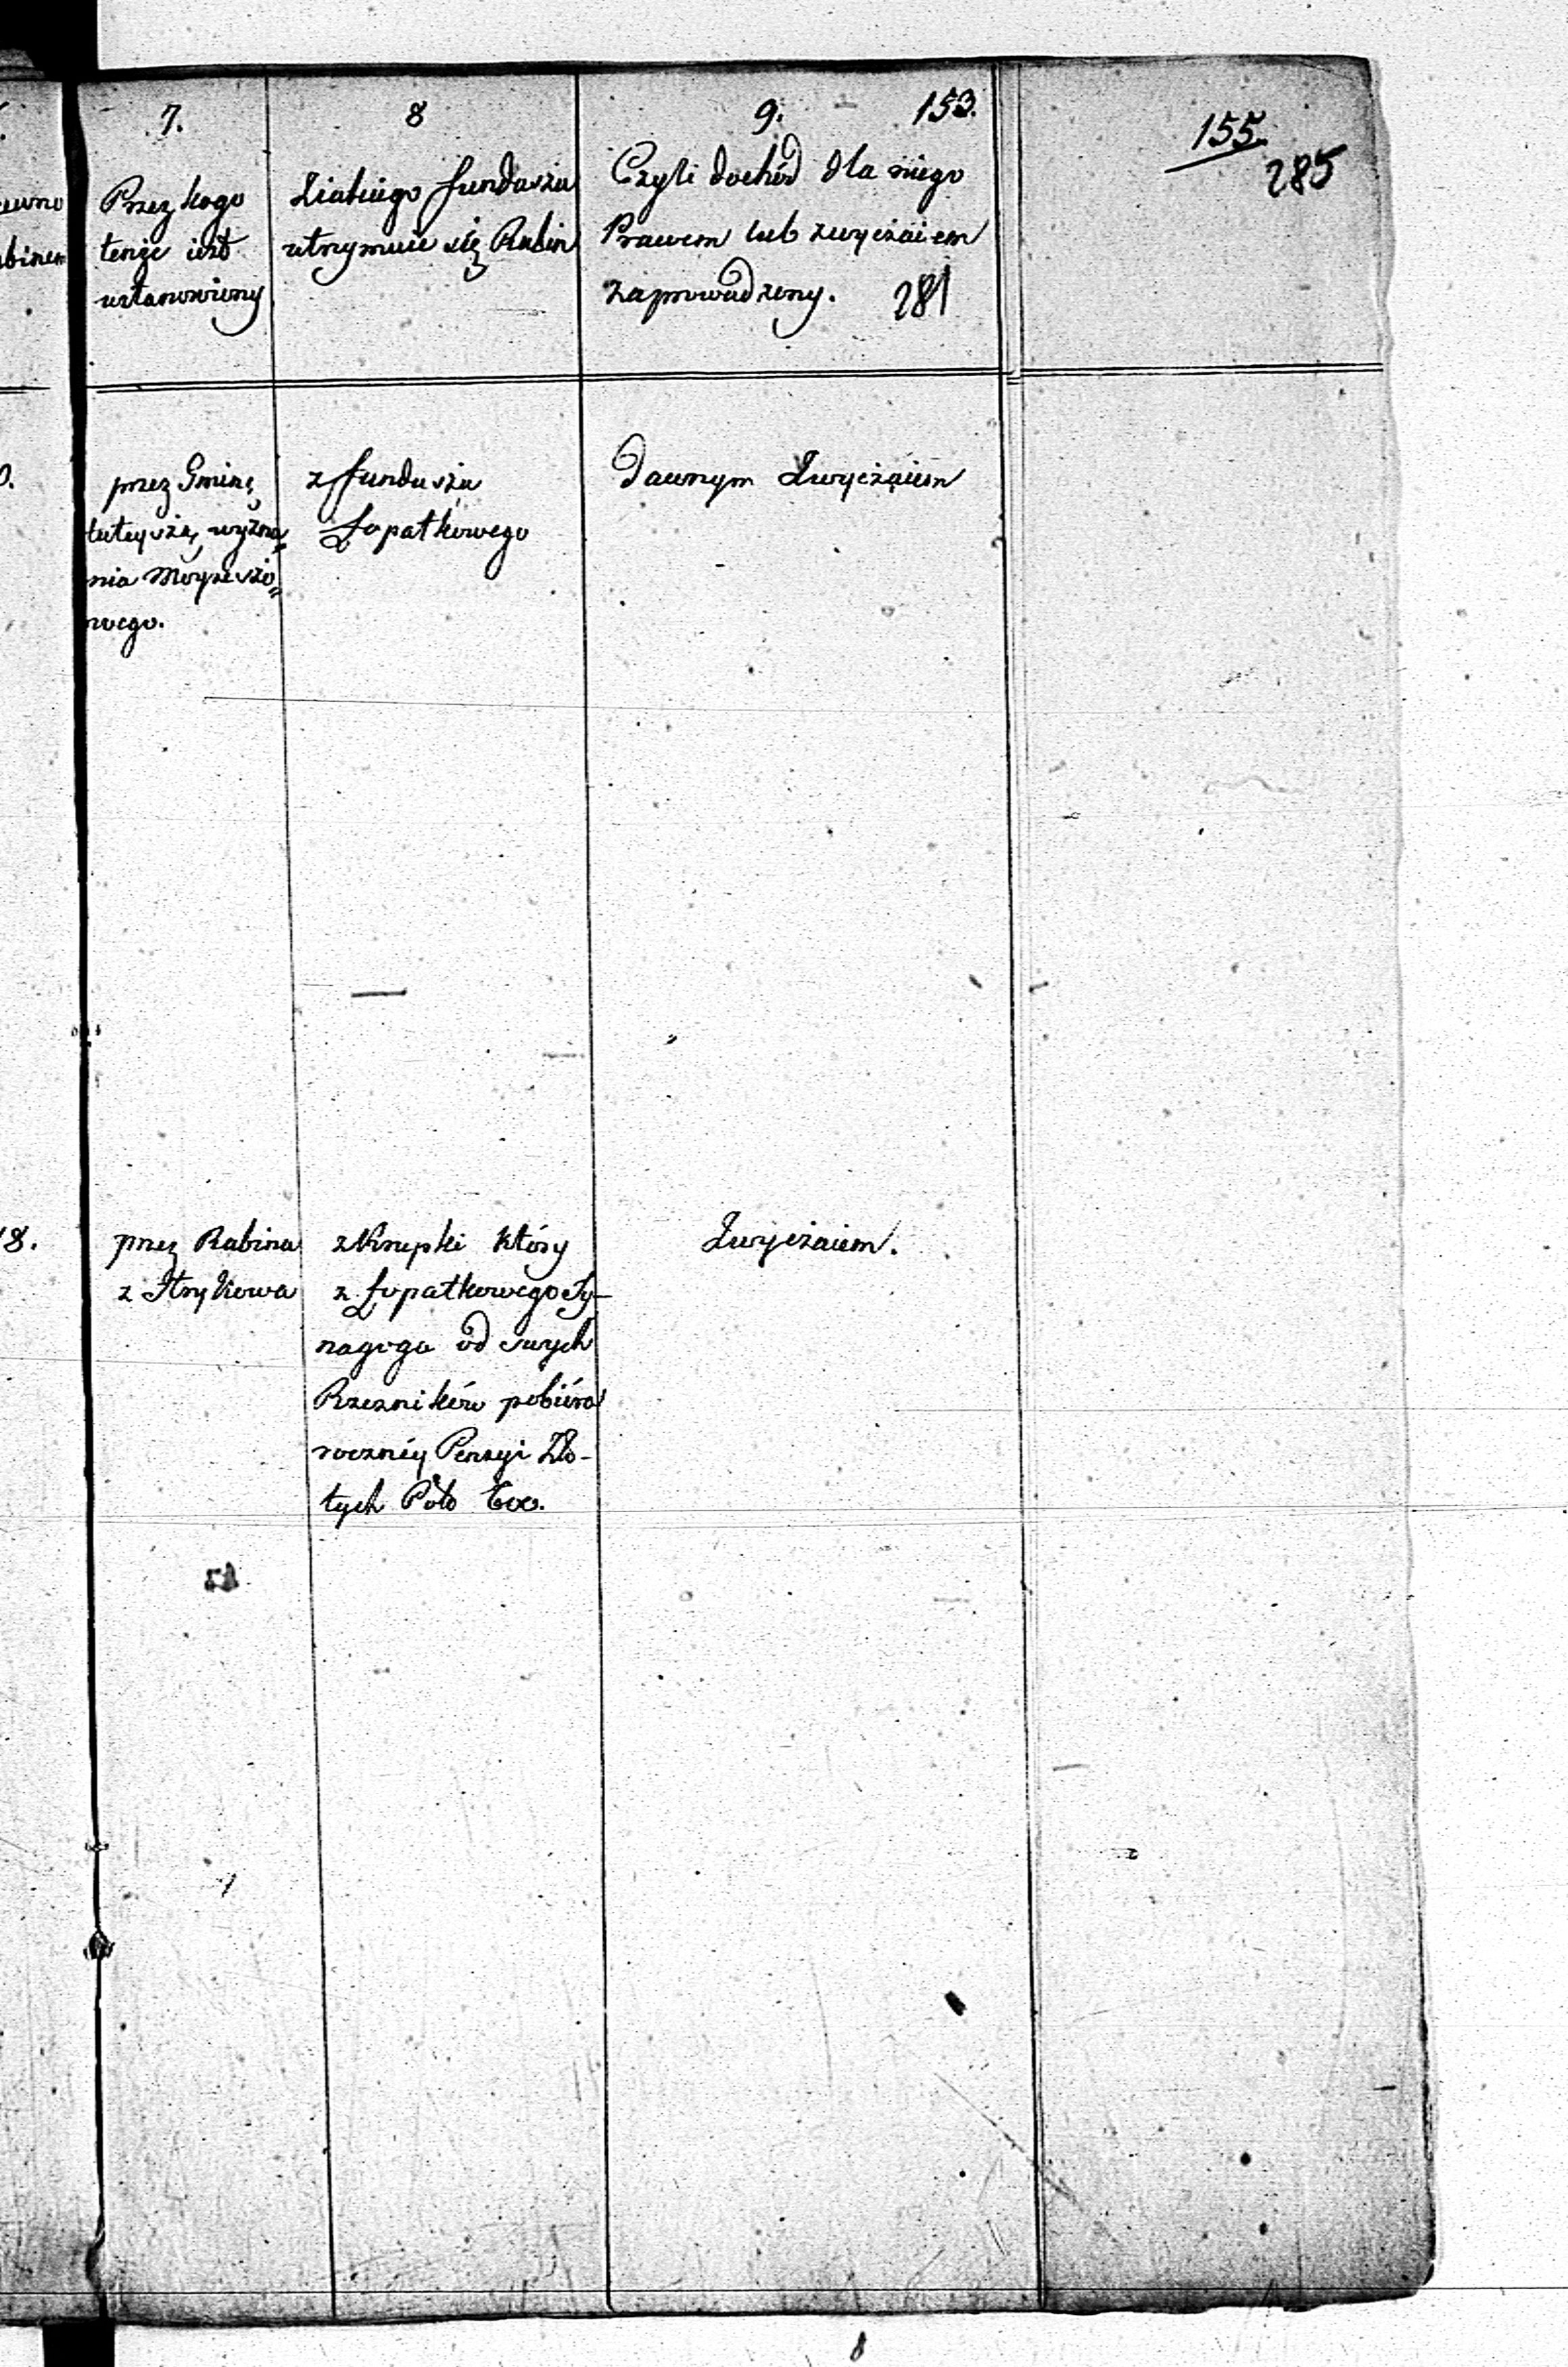 7.
Przez kogo
tenże iest
ustanowiony
8
Z iakiego funduszu
utrzymuie się Rabin
9.
153.
Czyli dochód dla niego
Prawem lub zwyczaiem
zaprowadzony.
281
155.
285
przez Gminę
tuteyszą, wyzna=
nia Moyżeszo=
wego.
z ffunduszu
Łopatkowego
Dawnym Zwyczaiem
18.
przez Rabina
z Strykowa
z Krupki który
z Łopatkowego Sy-
nagoga od swych
Rzezników pobiéra
rocznéy Pensyi Zło-
tych Pol
Zwyczaiem.
8